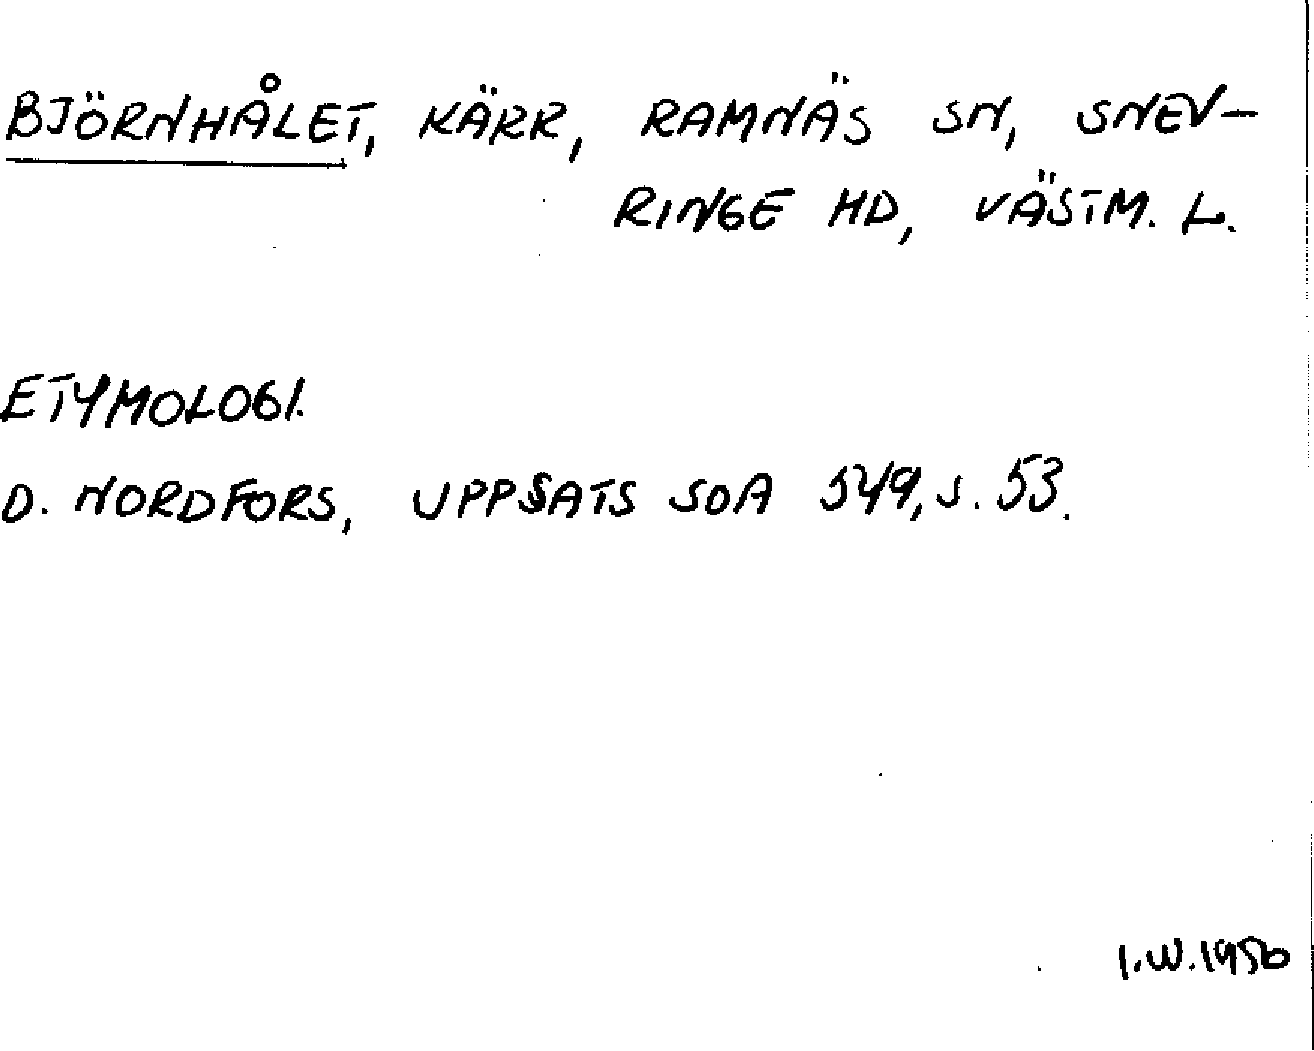 BJÖRNHÅLET, KÄRR, RAMNÄS SN, SNEV-
RINGE HD, VÄSTM. L.
ETYMOLOGI.
D. NORDFORS, UPPSATS SOA 549, S. 53.
I.W. 1956